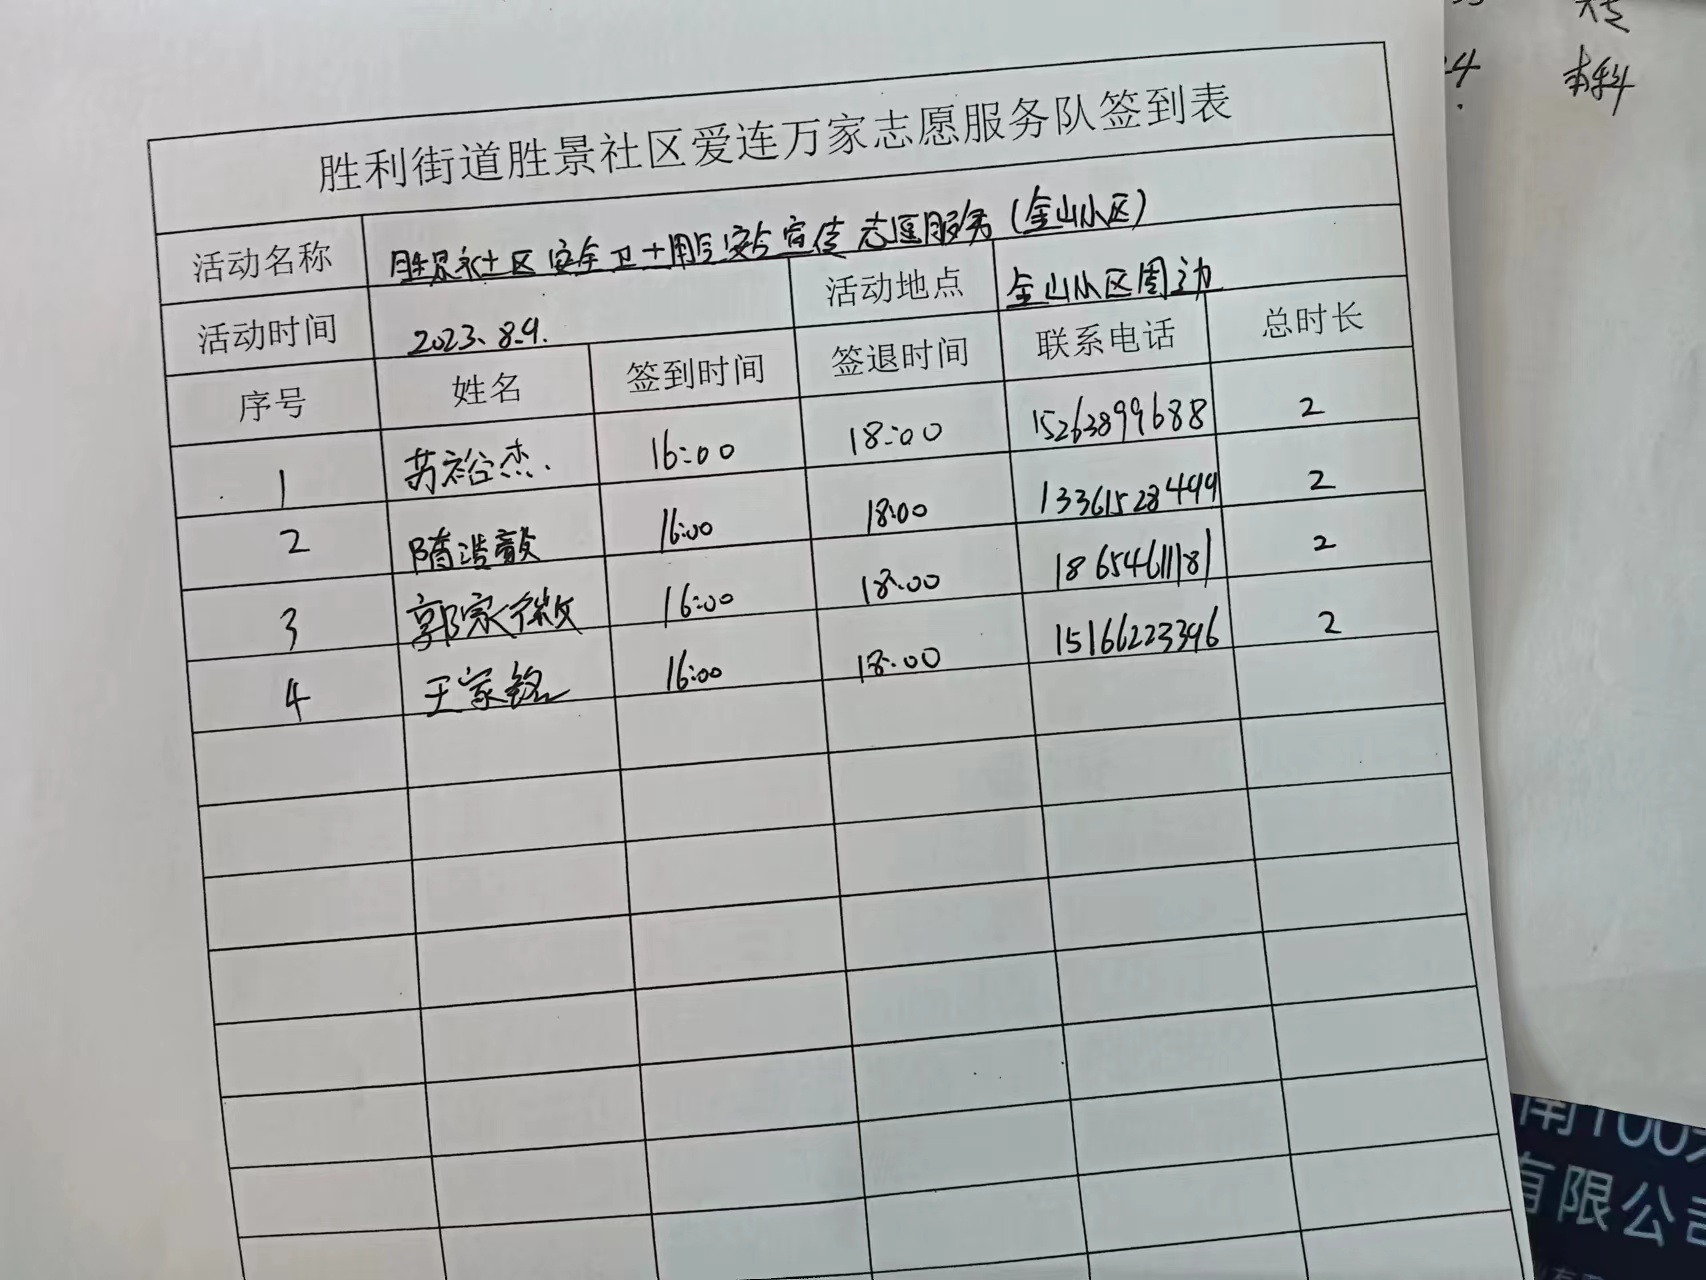 胜利街道胜景社区爱连万家志愿服务队签到表
活动名称 胜景社区安全卫士用气安全宣传志愿服务(金山小区)
活动时间 2023.8.9. 活动地点 金山小区周边
序号 姓名 签到时间 签退时间 联系电话 总时长
1 苏裕杰. 16:00 18:00 15263899688 2
2 隋浩毅 16:00 18:00 13361528499 2
3 郭家微 16:00 18:00 18654611181 2
4 王家铭 16:00 18:00 15166223396 2
大专
本科
南100
有限公司